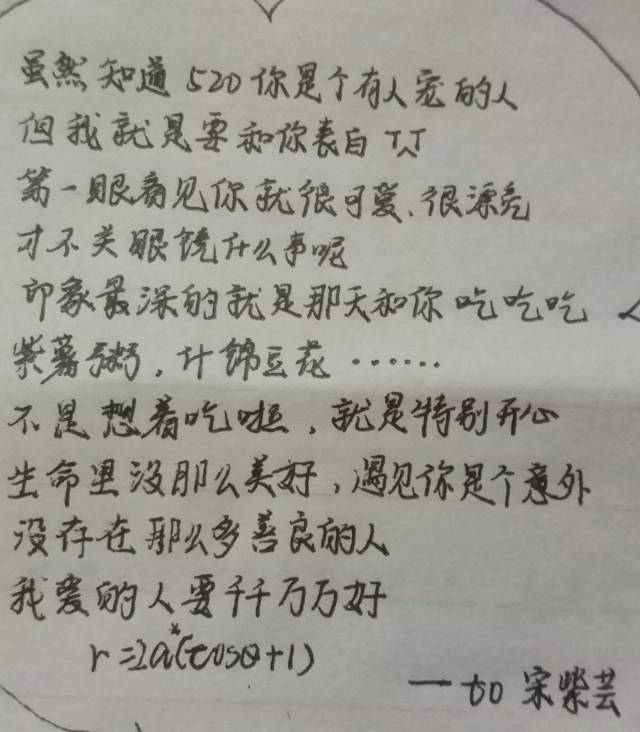 虽然知道520你是个有人宠的人
但我就是要和你表白TAT
第一眼看见你就很可爱、很漂亮
才不关眼镜什么事呢
印象最深的就是那天和你吃吃吃
紫薯粥，什锦豆花……
不是想着吃啦，就是特别开心
生命里没那么美好，遇见你是个意外
没存在那么多善良的人
我爱的人要千千万万好
r=2a*(cosθ+1)
——to 宋紫芸